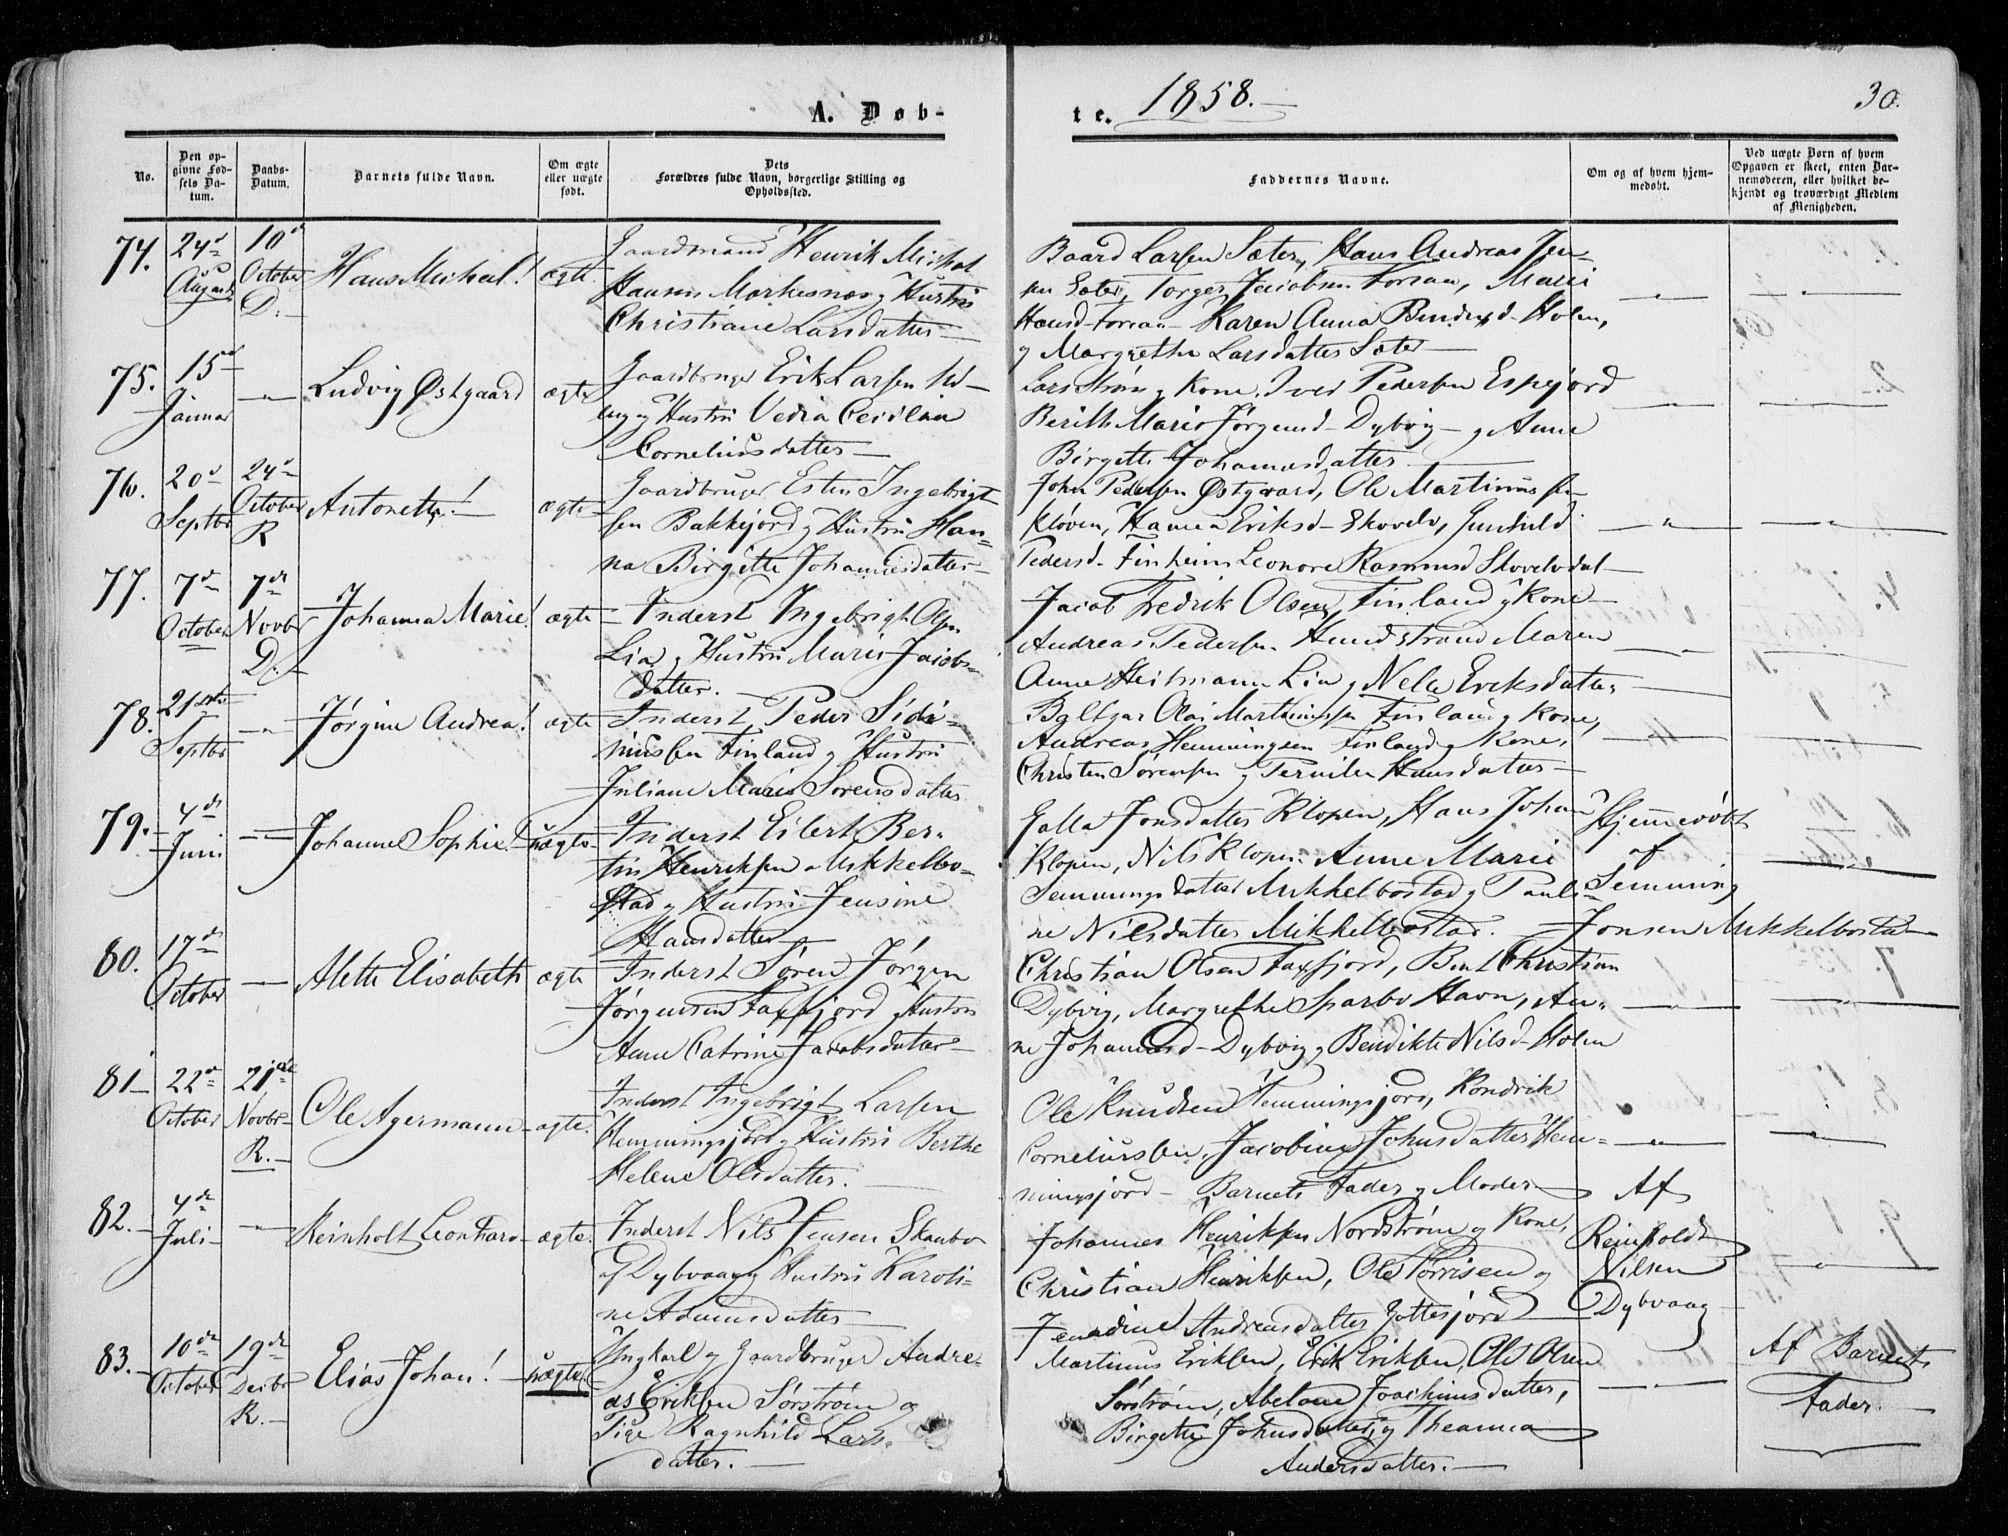 A. Døb-
te. 1858.
30.
No.
Den op-
givne Fød-
sels Da-
tum.
Daabs-
Datum.
Barnets fulde Navn.
Om ægte
eller uægte
født.
Dets
Forældres fulde Navn, borgerlige Stilling og
Opholdssted.
Faddernes Navne.
Om og af hvem hjem-
medøbt.
Ved uægte Børn af hvem
Opgaven er skeet, enten Bar-
nemoderen, eller hvilket be-
kjendt og troværdigt Medlem
af Menigheden.
74.
24de
August
10de
October
D.
Hans Michal!
ægte
Gaardmand Henrik Michal
Hansen Markesnæs og Hustru
Christiane Larsdatter
Baard Larsen Sæter, Hans Andreas Jen-
sen Sæter, Torger Jacobsen Forraa, Marie
Hansd. Forraa Karen Anna Bendixd. Holen,
og Margrethe Larsdatter Sæter
75.
15de
Januar
Ludvig Østgaard
ægte
Gaardbruger Erik Larsen
og Hustru Vedia Ceicilia
Corneliusdatter
Lars Strøm og Kone, Iver Pedersen Espejord
Berith Marie Jørgensd. Dybvig og Anne
Birgitte Johannesdatter
76.
20de
Septbr
24de
October
R
Antonette!
ægte
Gaardbruger Esten Ingebrigt-
sen Bakkejord og Hustru Han-
na Birgitte Johannesdatter
John Pedersen Østgaard, Ole Martinussen
Kløven, Hanna Eriksd. Skovelv, Gunhild
Pedersd. Finheim Leonore Rasmusd Skovelvdal
77.
7de
October
7de
Novbr
D.
Johanna Marie!
ægte
Inderst Ingebrigt Olsen
Lia og Hustru Maris Jacobs-
datter.
Jacob Fredrik Olsen Finland og Kone
Andreas Pedersen Hundstrand Maren
Anne Heitmann Lia og Nella Eriksdatter
78.
21de
Septbr
Jørgine Andrea!
ægte
Inderst Peder Sidi-
niussen Finland og Hustru
Juliane Marie Sørensdatter
Baltzar Olai Martinussen Finland og Kone,
Andreas Hemmingsen Finland og Kone,
Christen Sørensen og Pernille Hansdatter
79.
4de
Juni
Johanne Sophie!
uægte
Inderst Eilert Ber-
tin Henriksen Mikkelbo-
stad og Hustru Jensine
Hansdatter
Galla Jonsdatter Klopen, Hans Johan
Klopen, Nils Klopen, Anne Marie
Semmingsdatter Mikkelbostad og Pauli-
ne Nilsdatter Mikkelbostad.
Hjemmedøbt
af
Semming
Jonsen Mikkelbostad
80.
17de
October
Alette Elisabeth
ægte
Inderst Søren Jørgen
Jørgensen Faxfjord og Hustru
Anne Catrine Jacobsdatter
Christian Olsen Faxfjord, Bent Christian
Dybvig, Margrethe Sparbo Havn, An-
ne Johannesd Dybvig, Bendikte Nilsd. Holen
81
22de
October
21de
Novbr
R.
Ole Agermann
ægte.
Inderst Ingebrigt Larsen
Hemmingsjord og Hustru Berthe
Helene Olsdatter.
Ole Knudsen Hemmingsjord, Kondrik
Corneliussen, Jacobine Johnsdatter Hem-
mingsjord Barnets Fader og Moder
82.
4de
Juli
Reinholt Leonhard
ægte.
Inderst Nils Jensen Skanbo
af Dybvaag og Hustru Karoli-
ne Adamsdatter
Johannes Henriksen Nordstrøm og Kone,
Christian Henriksen, Ole Torrisen og
Andreasdatter Gottesjord
Af
Reinholdt
Nilsen
Dybvaag
83.
10de
October
19de
Decbr
R.
Elias Johan!
uægte
Ungkarl og Gaardbruger Andre-
as Eriksen Sørstrøm og
Pige Ragnhild Lars-
datter.
Martinus Eriksen, Erik Eriksen, Ole Olsen
Sørstrøm, Abelone Joachimsdatter,
Birgitte Johnsdatter, og Theamea
Andersdatter.
Af Barnets
Fader.